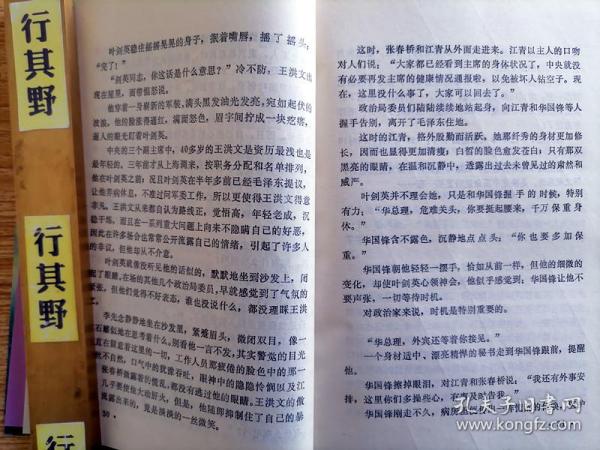 行其野
行其野
行
叶剑英稳住摇摇晃晃的身子，抿着嘴唇，摇了摇头：
“完了！”
“剑英同志，你这话是什么意思？”冷不防，王洪文出
现在屋里，面带愠怒说。
他穿着一身崭新的军装，满头黑发油光发亮，宛如起伏的
波浪。他的脸涨得通红，满面怒色，眉宇间拧成一块疙瘩，
逼人的眼光盯着叶剑英。
中央的三个副主席中，40多岁的王洪文是资历最浅也是
最年轻的。三年前才从上海调来，按职务分配和名单排列，
他在叶剑英之前；况且叶剑英在半年多前已经毛泽东提议，
让他养病休息，不过问军委工作，所以更使得王洪文得意
非凡。王洪文从来都自认为路线正，觉悟高，年轻老成，沉
稳干练，而且在一系列重大问题上向来不隐瞒自己的好恶，
因此在许多场合也常常公开流露自己的情绪，引起了许多人
的非议，但他却从不介意。
叶剑英就像没听见他的话似的，默默地坐到沙发上，闭
起了眼睛。在场的其他几个政治局委员，早就感觉到了气氛的
紧张，但他们觉得不好表态，谁也没说什么，都没理睬王洪
文。
李先念静静地坐在沙发里，紧蹙眉头，微闭双目，像一
直在默默地在思考着什么。别看他一言不发，其实警觉的目光
张春桥微露着的慌乱，都没有逃过他的眼睛。王洪文的傲
几乎要使他大动肝火，但是，他随即抑制住了自己的暴
露出来的，竟是淡淡的一丝微笑。
30
这时，张春桥和江青从外面走进来。江青以主人的口吻
对人们说：“大家都已经看到主席的身体状况了，中央就没
有必要再发主席的健康情况通报啦，以免被坏人钻空子。现
在，这里没什么事了，大家可以回去了。”
政治局委员们陆陆续续地站起身，向江青和华国锋等人
握手告别，离开了毛泽东住地。
这时的江青，格外殷勤而活跃。她那纤秀的身材更加修
长，因而也显得更加清瘦；白皙的脸色愈发苍白；只有那双
黑亮的眼睛，在温和沉静中，透露出过去未曾见过的肃然和
威严。
叶剑英并不理会她，只是和华国锋握手的时候，特别
有力：“华总理，危难关头，你要挺起腰来，千万保重身
体。”
华国锋含不露色，沉静地点点头：“你也要多加保
重。”
华国锋朝他轻轻一摆手，恰如从前一样，但他的细微的
变化，却使叶剑英心领神会，他似乎感觉到：华国锋让他不
要声张，一切等待时机。
对政治家来说，时机是特别重要的。
“华总理，外宾还等着你接见。”
一个身材适中、漂亮精悍的秘书走到华国锋跟前，提醒
他。
华国锋擦掉眼泪，对江青和张春桥说：“我还有外事安
排，这里你们多操些心，有事及时告我。”
华国锋刚走不久，病房
孔夫子旧书网
www.kongfz.com